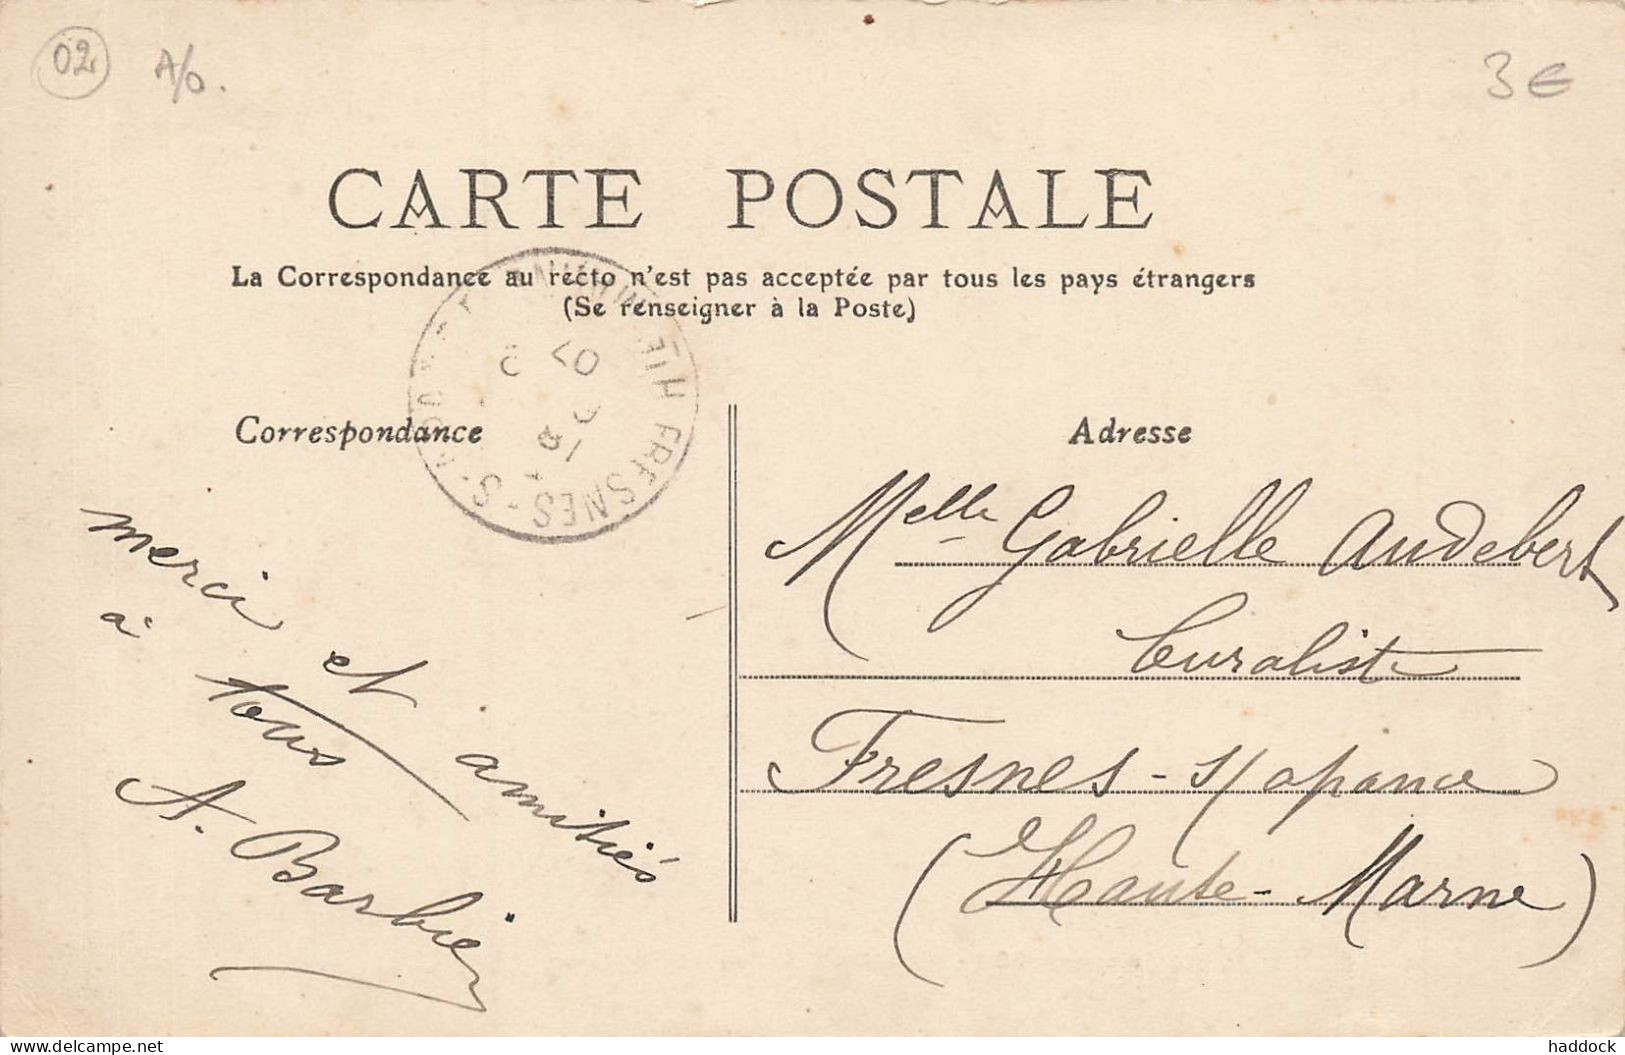 02 A/D. 3 €
CARTE POSTALE
La Correspondance au recto n'est pas acceptée par tous les pays étrangers
(Se renseigner à la Poste)
Correspondance
merci et amitiés
à tous
A. Barbier
Adresse
Melle Gabrielle Audebert
Curaliste
Fresnes - s/apance
(Haute-Marne)
FRESNES-S-
07
delcampe.net
haddock